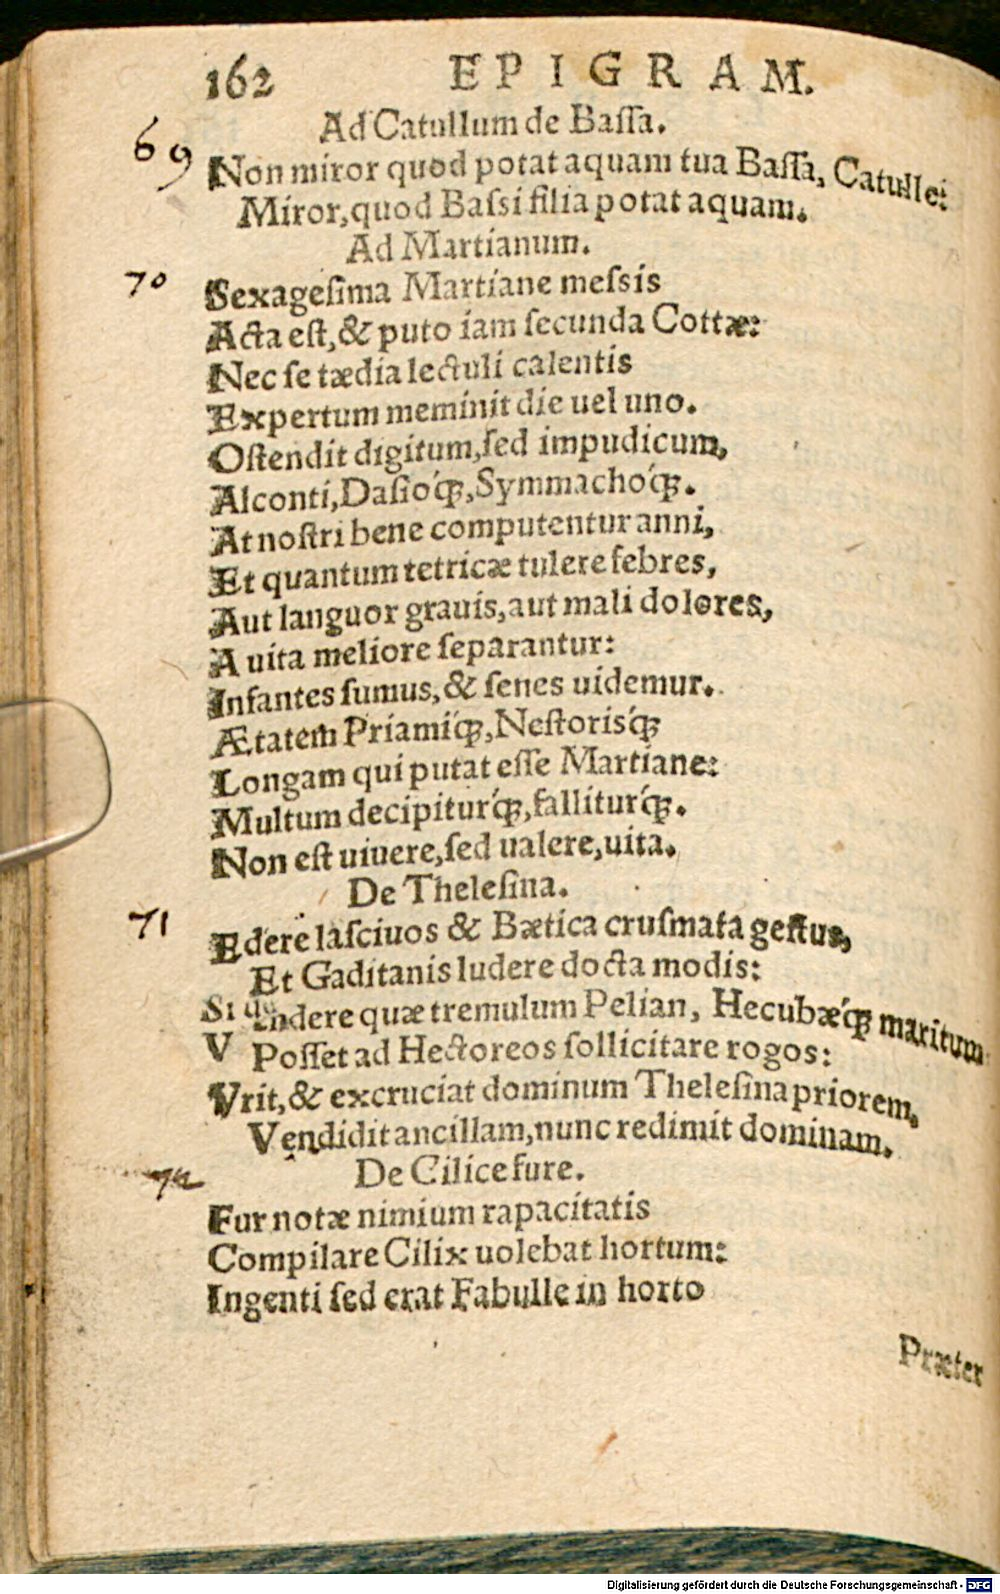 162 EPIGRAM.
Ad Catullum de Bassa.
69 Non miror quod potat aquam tua Bassa, Catulle:
Miror, quod Bassi filia potat aquam.
Ad Martianum.
70 Sexagesima Martiane messis
Acta est, & puto iam secunda Cottæ:
Nec se tædia lectuli calentis
Expertum meminit die uel uno.
Ostendit digitum, sed impudicum,
Alconti, Dasioq́;, Symmachoq́;.
At nostri bene computentur anni,
Et quantum tetricæ tulere febres,
Aut languor grauis, aut mali dolores,
A uita meliore separantur:
Infantes sumus, & senes uidemur.
Ætatem Priamiq́;, Nestorisq́;
Longam qui putat esse Martiane:
Multum decipiturq́;, falliturq́;.
Non est uiuere, sed ualere, uita.
De Thelesina.
71 Edere lasciuos & Bætica crusmata gestus,
Et Gaditanis ludere docta modis:
endere quæ tremulum Pelian, Hecubæq́; maritum
Posset ad Hectoreos sollicitare rogos:
Vrit, & excruciat dominum Thelesina priorem,
Vendidit ancillam, nunc redimit dominam.
De Cilice fure.
72 Fur notæ nimium rapacitatis
Compilare Cilix uolebat hortum:
Ingenti sed erat Fabulle in horto
Præter
Digitalisierung gefördert durch die Deutsche Forschungsgemeinschaft - DFG